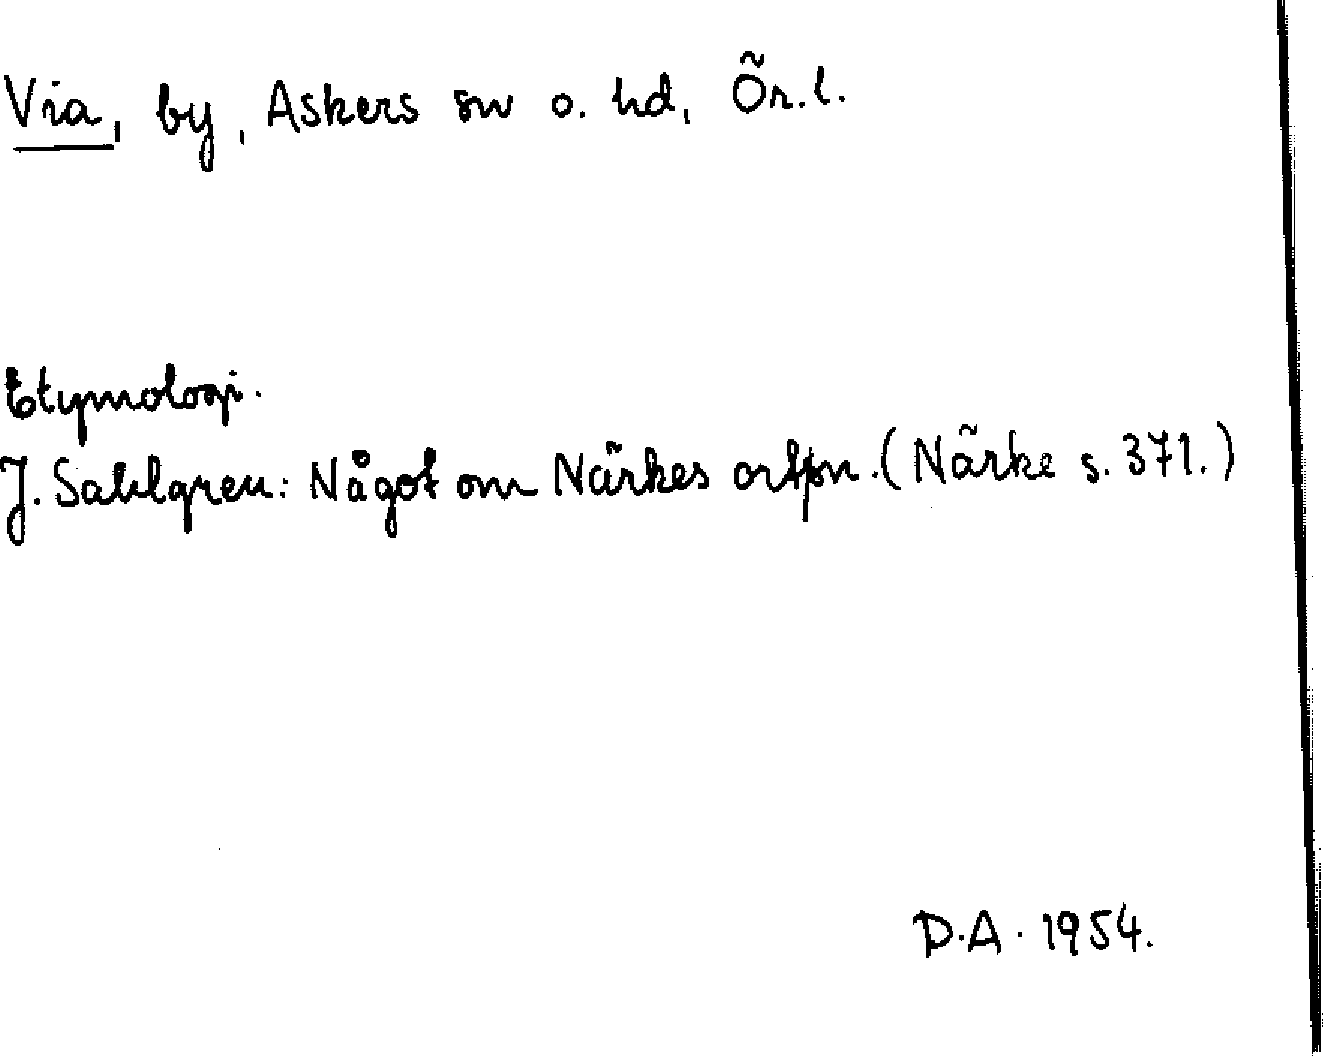 Via, by, Askers sn o. hd, Ör.l.
Etymologi.
J. Sahlgren: Något om Närkes ortsn. (Närke s. 371.)
D.A. 1954.